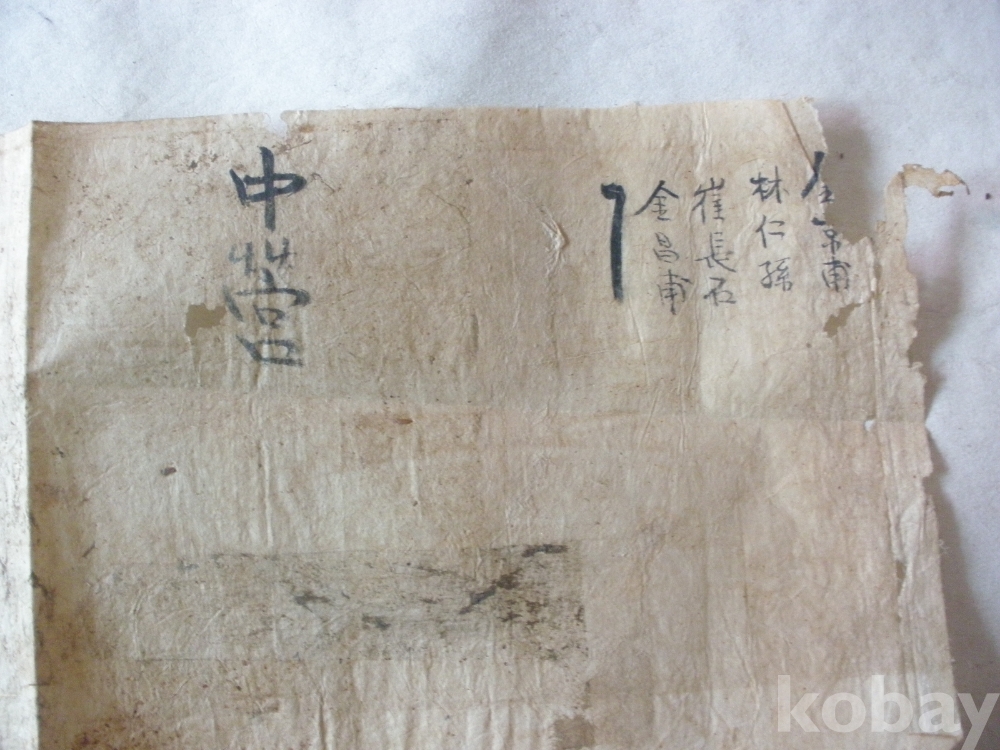 京甫
林仁孫
崔長石
金昌甫
中营
kobay